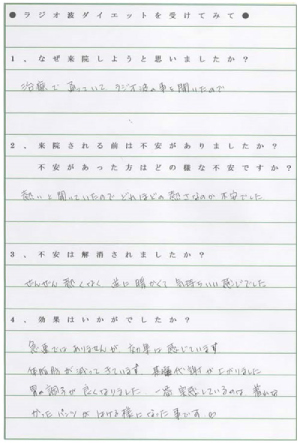 ● ラジオ波ダイエットを受けてみて ●
1. なぜ来院しようと思いましたか?
治療で通っていて ラジオ波の事を聞いたので
2. 来院される前は不安がありましたか?
不安があった方はどの様な不安ですか?
熱いと聞いていたので どれほどの熱さなのか不安でした
3. 不安は解消されましたか?
ぜんぜん熱くなく 逆に暖かくて気持ちいい感じでした
4. 効果はいかがでしたか?
急激ではありませんが 効果は感じています
体脂肪が減ってきています 基礎代謝が上がりました
胃の調子が良くなりました 一番実感しているのは
かったパンツがはける様になった事です